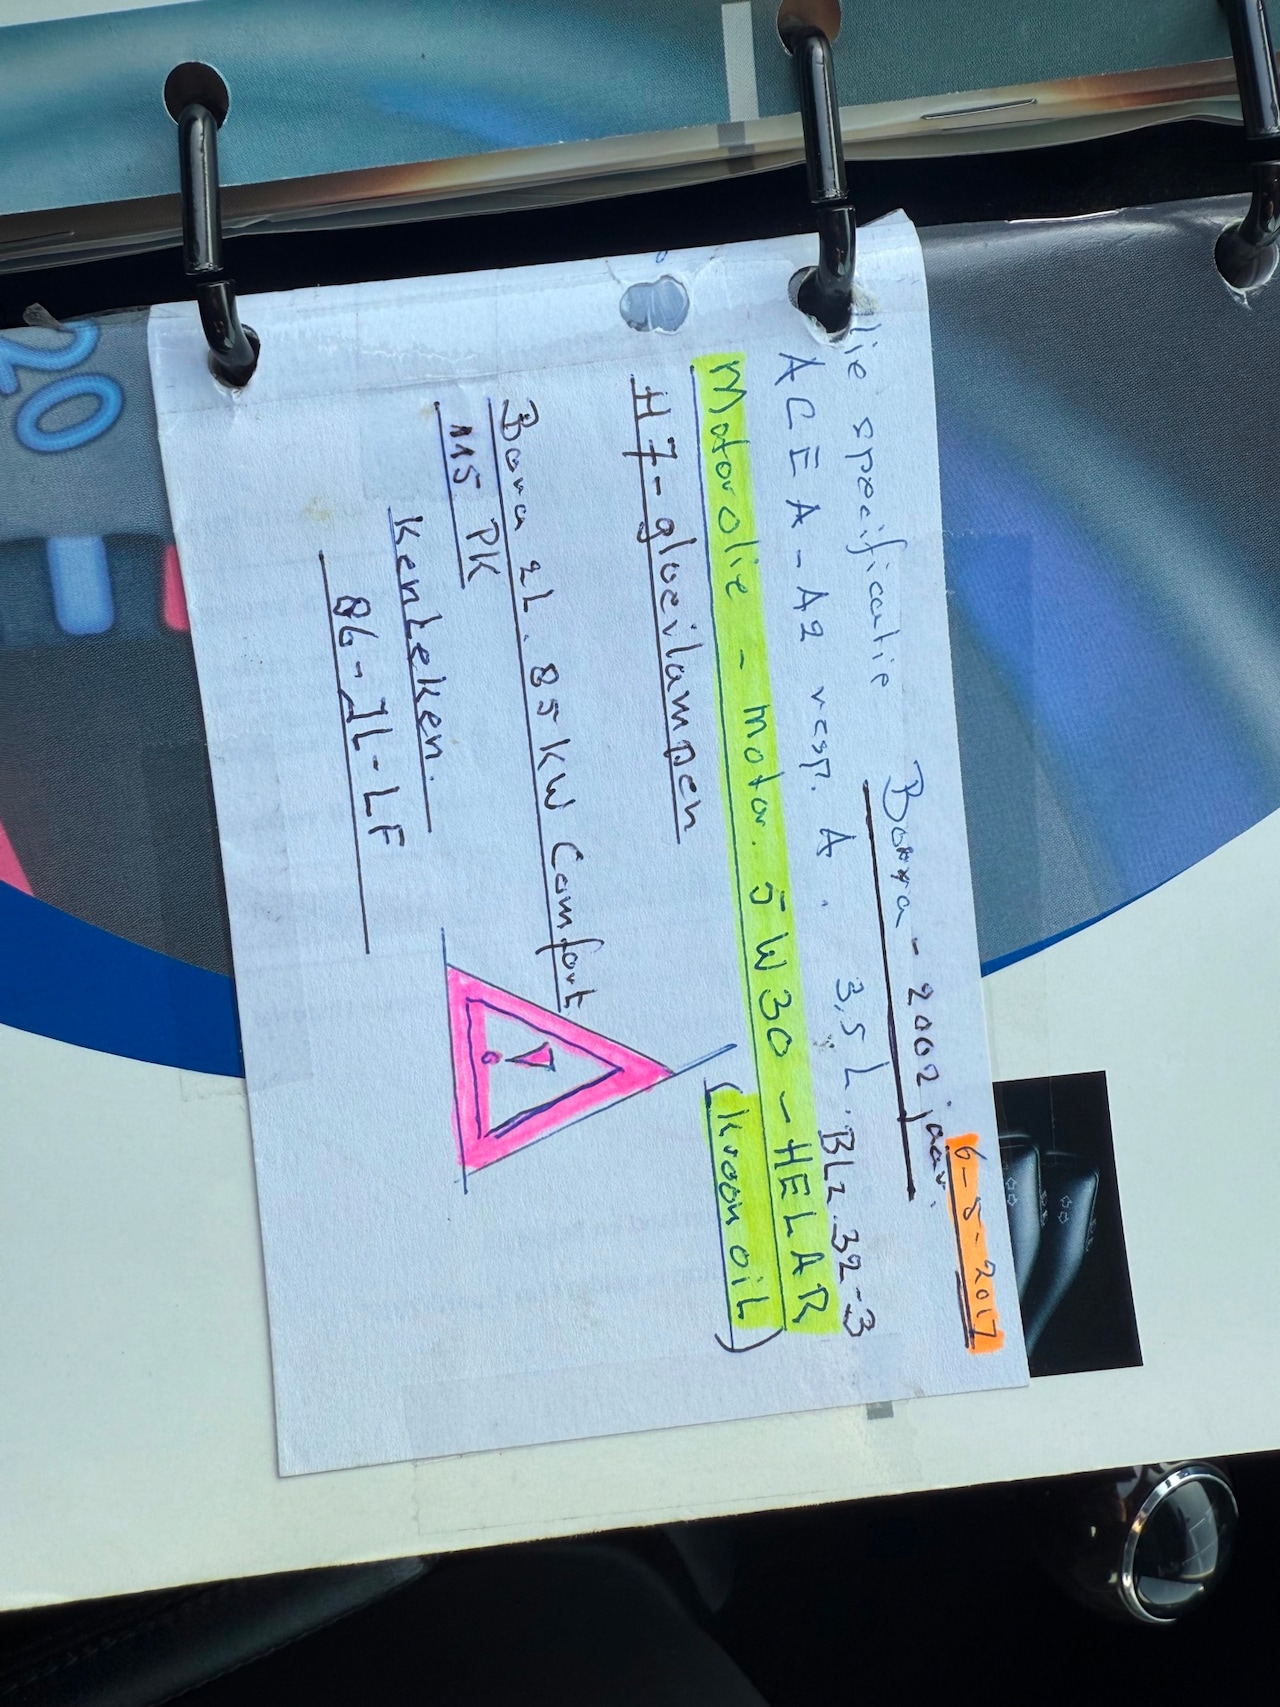 6-8-2017
Bora - 2002 jaar.
lie specificatie
ACEA-A2 resp. A. 3,5 L. BLz. 32-3
Motorolie - motor. 5W30 - HELAR
(kroon oil)
H7-gloeilampen
Bora 2L. 85 KW Comfort
115 PK
Kenteken.
86-JL-LF
20